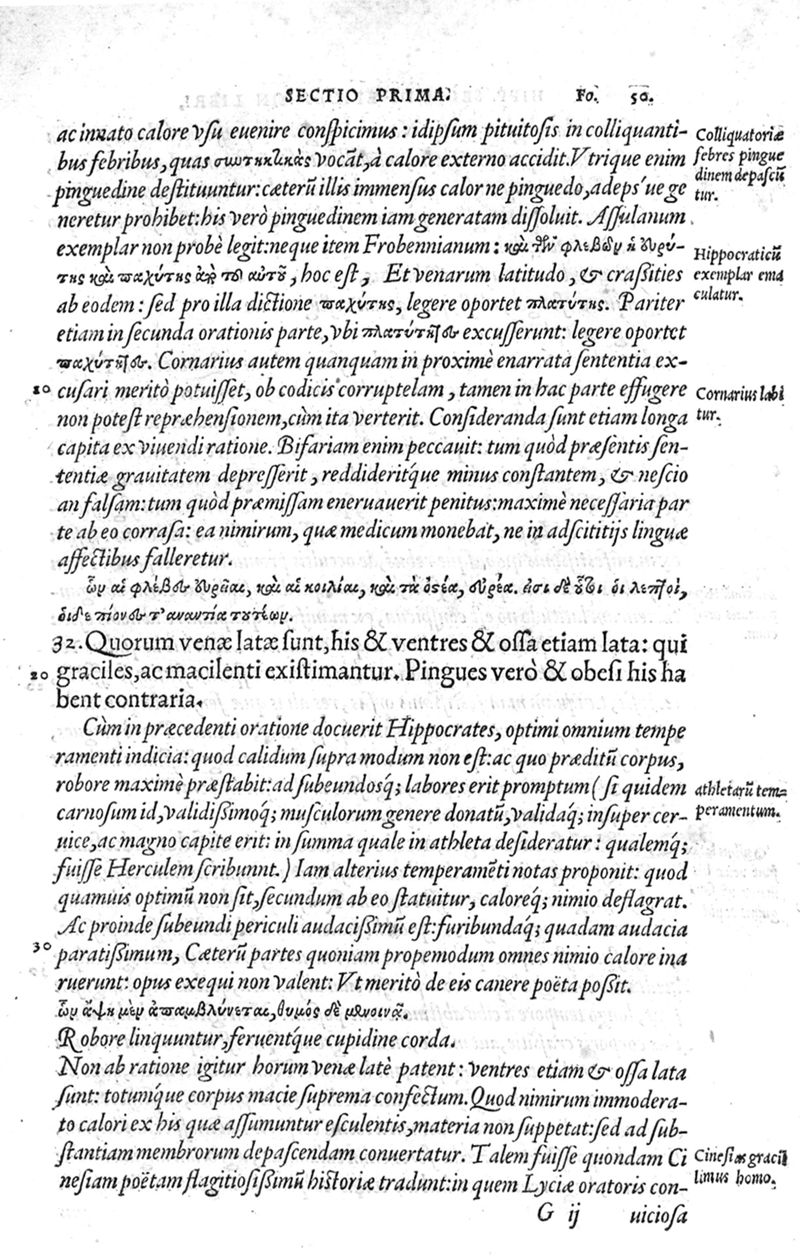 SECTIO PRIMA. Fo. 50.
ac innato calore vsu euenire conspicimus: idipsum pituitosis in colliquanti-
bus febribus, quas συντηκτικὰς vocāt, à calore externo accidit. Vtrique enim
pinguedine destituuntur: cæterū illis immensus calor ne pinguedo, adeps've ge
neretur prohibet: his verò pinguedinem iam generatam dissoluit. Assulanum
exemplar non probè legit: neque item Frobennianum: καὶ τῶν φλεβῶν ἡ εὐρύ-
της καὶ παχύτης ἀπὸ τοῦ αὐτοῦ, hoc est, Et venarum latitudo, & crassities
ab eodem: sed pro illa dictione παχύτης, legere oportet πλατύτης. Pariter
etiam in secunda orationis parte, vbi πλατύτητες excusserunt: legere oportet
παχύτητες. Cornarius autem quanquam in proximè enarrata sententia ex-
10 cusari meritò potuisset, ob codicis corruptelam, tamen in hac parte effugere
non potest repræhensionem, cùm ita verterit. Consideranda sunt etiam longa
capita ex viuendi ratione. Bifariam enim peccauit: tum quòd præsentis sen-
tentiæ grauitatem depresserit, reddiderítque minus constantem, & nescio
an falsam: tum quòd præmissam eneruauerit penitus: maximè necessaria par
te ab eo corrasa: ea nimirum, quæ medicum monebat, ne in adscititijs linguæ
affectibus falleretur.
ὧν αἱ φλέβες εὐρεῖαι, καὶ αἱ κοιλίαι, καὶ τὰ ὀστέα, εὐρέα. εἰσὶ δὲ οὗτοι οἱ λεπτοὶ,
οἱ δὲ πίονες τ' ἀναντία τουτέων.
32. Quorum venæ latæ sunt, his & ventres & ossa etiam lata: qui
20 graciles, ac macilenti existimantur. Pingues verò & obesi his ha
bent contraria.
Cùm in præcedenti oratione docuerit Hippocrates, optimi omnium tempe
ramenti indicia: quod calidum supra modum non est: ac quo præditū corpus,
robore maximè præstabit: ad subeundosq; labores erit promptum (si quidem
carnosum id, validissimoq; musculorum genere donatū, validaq; insuper cer-
uice, ac magno capite erit: in summa quale in athleta desideratur: qualemq;
fuisse Herculem scribunnt.) Iam alterius temperamēti notas proponit: quod
quamuis optimū non sit, secundum ab eo statuitur, caloreq; nimio deflagrat.
Ac proinde subeundi periculi audacissimū est: furibundaq; quadam audacia
30 paratissimum, Cæterū partes quoniam propemodum omnes nimio calore ina
ruerunt: opus exequi non valent: Vt meritò de eis canere poëta possit.
ὧν ἀλκὴ μὲν ἀπαμβλύνεται, θυμὸς δὲ μενοινᾷ.
Robore linquuntur, feruentque cupidine corda.
Non ab ratione igitur horum venæ latè patent: ventres etiam & ossa lata
sunt: totumque corpus macie suprema confectum. Quod nimirum immodera-
to calori ex his quæ assumuntur esculentis, materia non suppetat: sed ad sub-
stantiam membrorum depascendam conuertatur. Talem fuisse quondam Ci
nesiam poëtam flagitiosissimū historiæ tradunt: in quem Lyciæ oratoris con-
G ij uiciosa
Colliquatoriæ
febres pingue
dinem depascū
tur.
Hippocraticū
exemplar ema
culatur.
Cornarius labi
tur.
athletarū tem=
peramentum.
Cinesias gracil
limus homo.